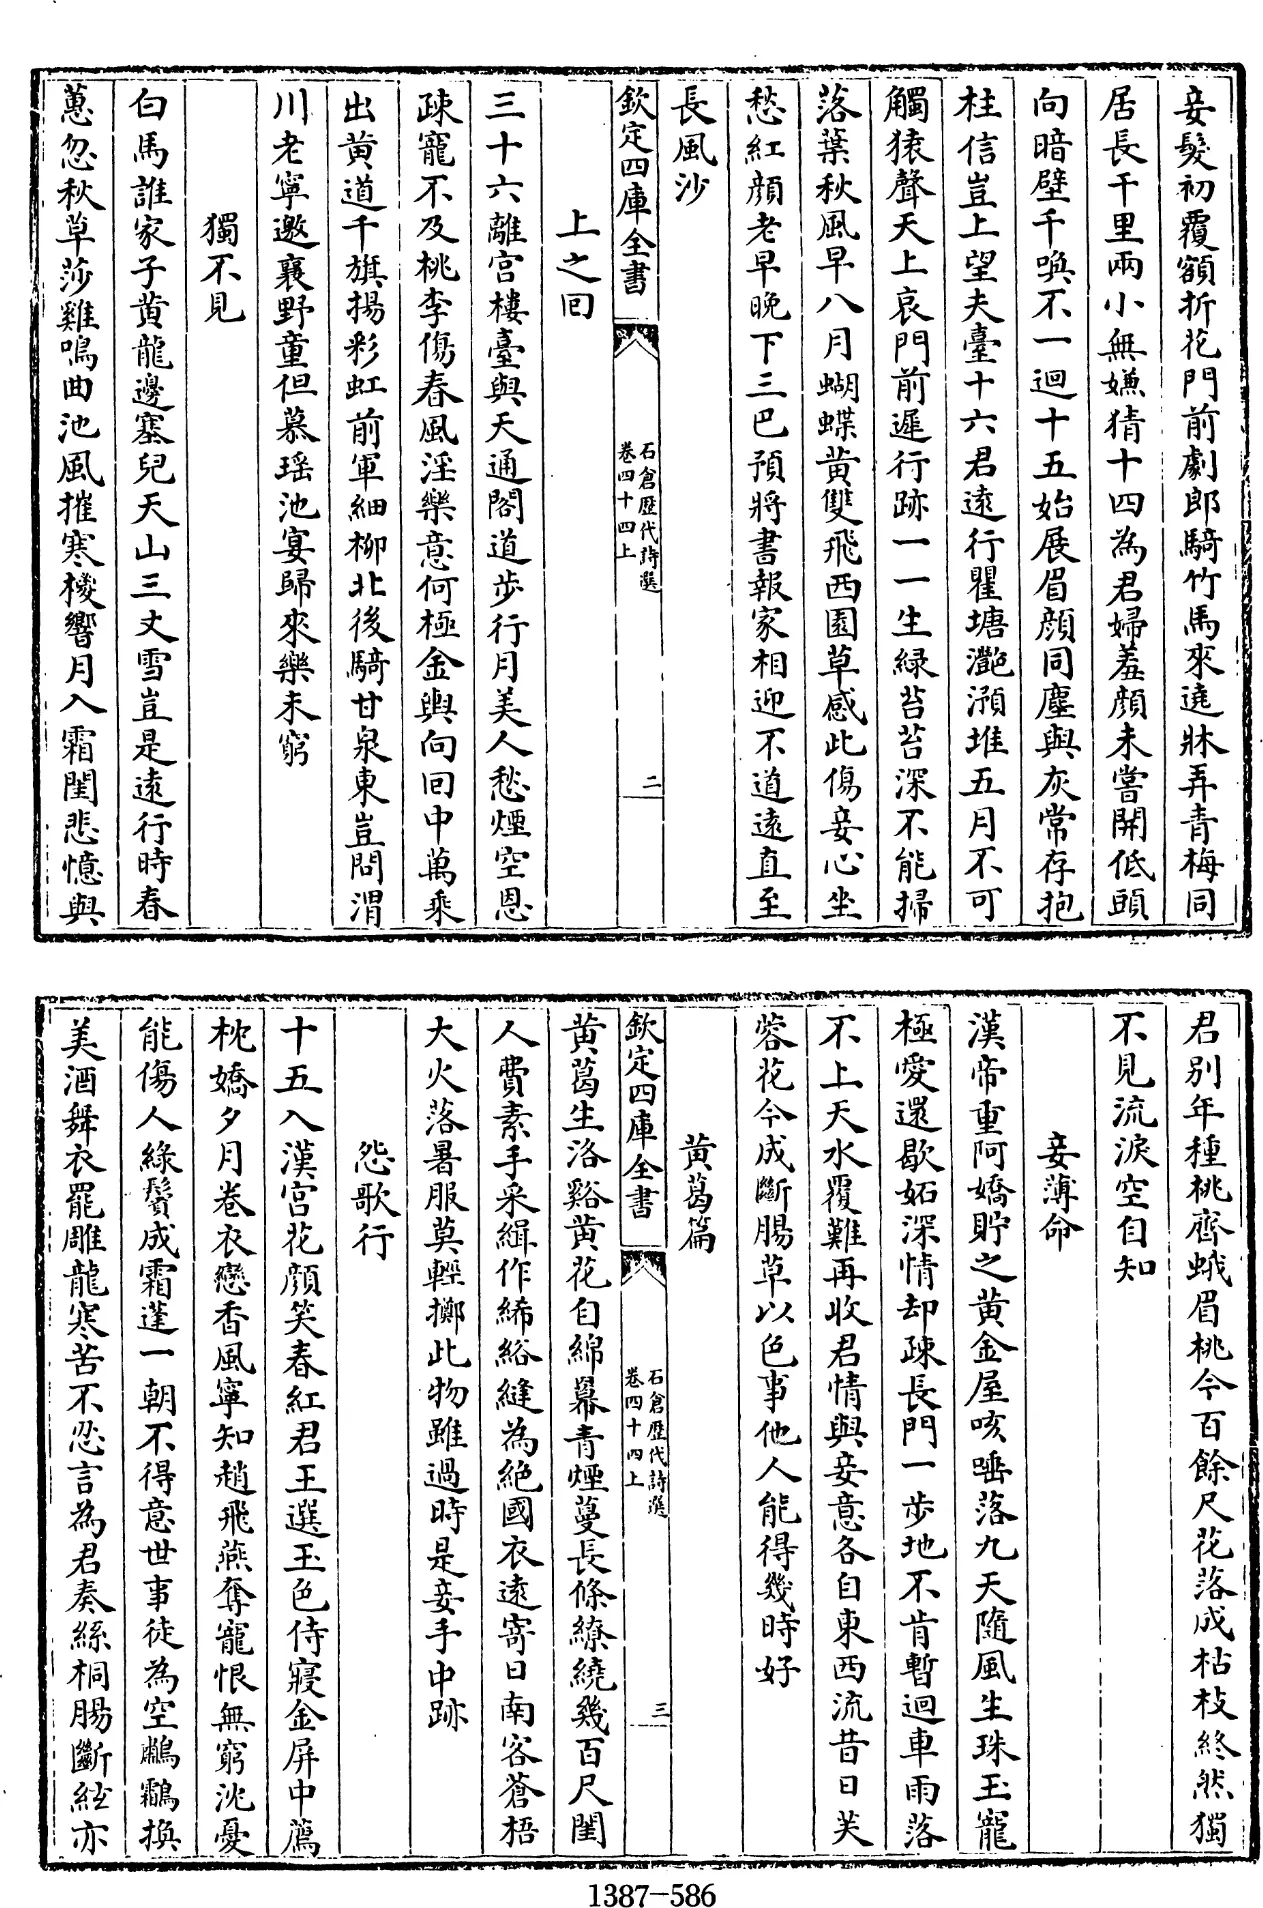 妾髮初覆額折花門前劇郎騎竹馬來遶牀弄青梅同
居長干里兩小無嫌猜十四為君婦羞顏未嘗開低頭
向暗壁千喚不一迴十五始展眉顏同塵與灰常存抱
柱信豈上望夫臺十六君遠行瞿塘灔澦堆五月不可
觸猿聲天上哀門前遲行跡一一生緑苔苔深不能掃
落葉秋風早八月蝴蝶黄雙飛西園草感此傷妾心坐
愁紅顔老早晩下三巴預將書報家相迎不道遠直至
長風沙
欽定四庫全書
石倉歴代詩選
卷四十四上
二
上之回
三十六離宫樓臺與天通閣道步行月美人愁煙空恩
疎寵不及桃李傷春風淫樂意何極金輿向回中萬乘
出黄道千旗揚彩虹前軍細柳北後騎甘泉東豈問渭
川老寧邀襄野童但慕瑶池宴歸來樂未窮
獨不見
白馬誰家子黄龍邊塞兒天山三丈雪豈是遠行時春
蕙忽秋草莎雞鳴曲池風摧寒椶響月入霜閨悲憶與
君别年種桃齊蛾眉桃今百餘尺花落成枯枝終然獨
不見流淚空自知
妾薄命
漢帝重阿嬌貯之黄金屋咳唾落九天隨風生珠玉寵
極愛還歇妬深情却疎長門一步地不肯暫迴車雨落
不上天水覆難再收君情與妾意各自東西流昔日芙
蓉花今成斷腸草以色事他人能得幾時好
黄葛篇
欽定四庫全書
石倉歴代詩選
卷四十四上
三
黄葛生洛谿黄花自綿羃青煙蔓長條繚繞幾百尺閨
人費素手采緝作絺綌縫為絶國衣遠寄日南客蒼梧
大火落暑服莫輕擲此物雖過時是妾手中跡
怨歌行
十五入漢宫花顔笑春紅君王選玉色侍寢金屏中薦
枕嬌夕月卷衣戀香風寧知趙飛燕奪寵恨無窮沈憂
能傷人綠鬢成霜蓬一朝不得意世事徒為空鷫鸘換
美酒舞衣罷雕龍寒苦不忍言為君奏絲桐腸斷絃亦
1387-586